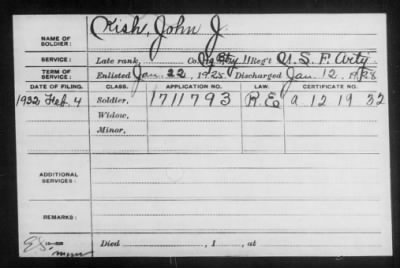 NAME OF SOLDIER: Kish, John J.
SERVICE: Late rank, Co. Reg't U.S.F. Arty.
TERM OF SERVICE: Enlisted Jan. 22, 1925 Discharged Jan. 12, 1928
DATE OF FILING. CLASS. APPLICATION NO. LAW. CERTIFICATE NO.
1932 Feb. 4 Soldier, 1711793 R.E. a 12 19 32
Widow,
Minor,
ADDITIONAL SERVICES:
REMARKS:
Died , 1 , at